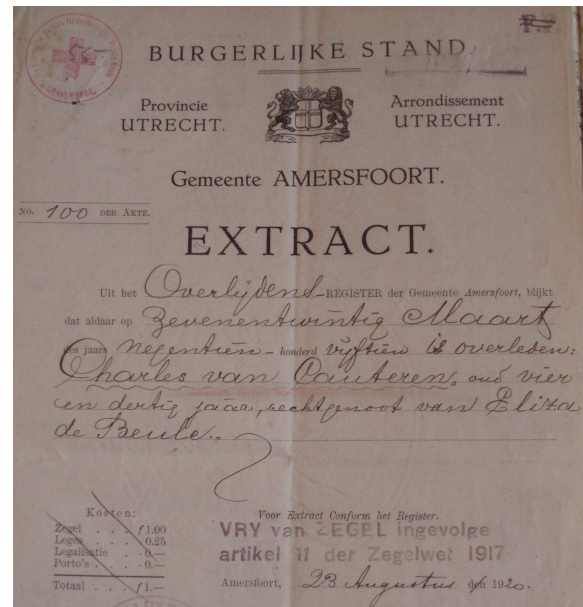 55-
BURGERLIJKE STAND
Provincie
UTRECHT.
Arrondissement
UTRECHT.
Gemeente AMERSFOORT.
No. 100 DER AKTE.
EXTRACT.
Uit het Overlijdens-REGISTER der Gemeente Amersfoort, blijkt
dat aldaar op Zevenentwintig Maart
des jaars negentien-honderd vijftien is overleden:
Charles van Cauteren, oud vier
en dertig jaar, echtgenoot van Eliza
de Beule.
Kosten:
Zegel . . . . f 1.00
Leges . . . . - 0.25
Legalisatie - 0.—
Porto's . . . - 0.—
Totaal . . . f 1.—
Voor Extract Conform het Register.
VRY van ZEGEL ingevolge
artikel 11 der Zegelwet 1917
Amersfoort, 23 Augustus 1920.